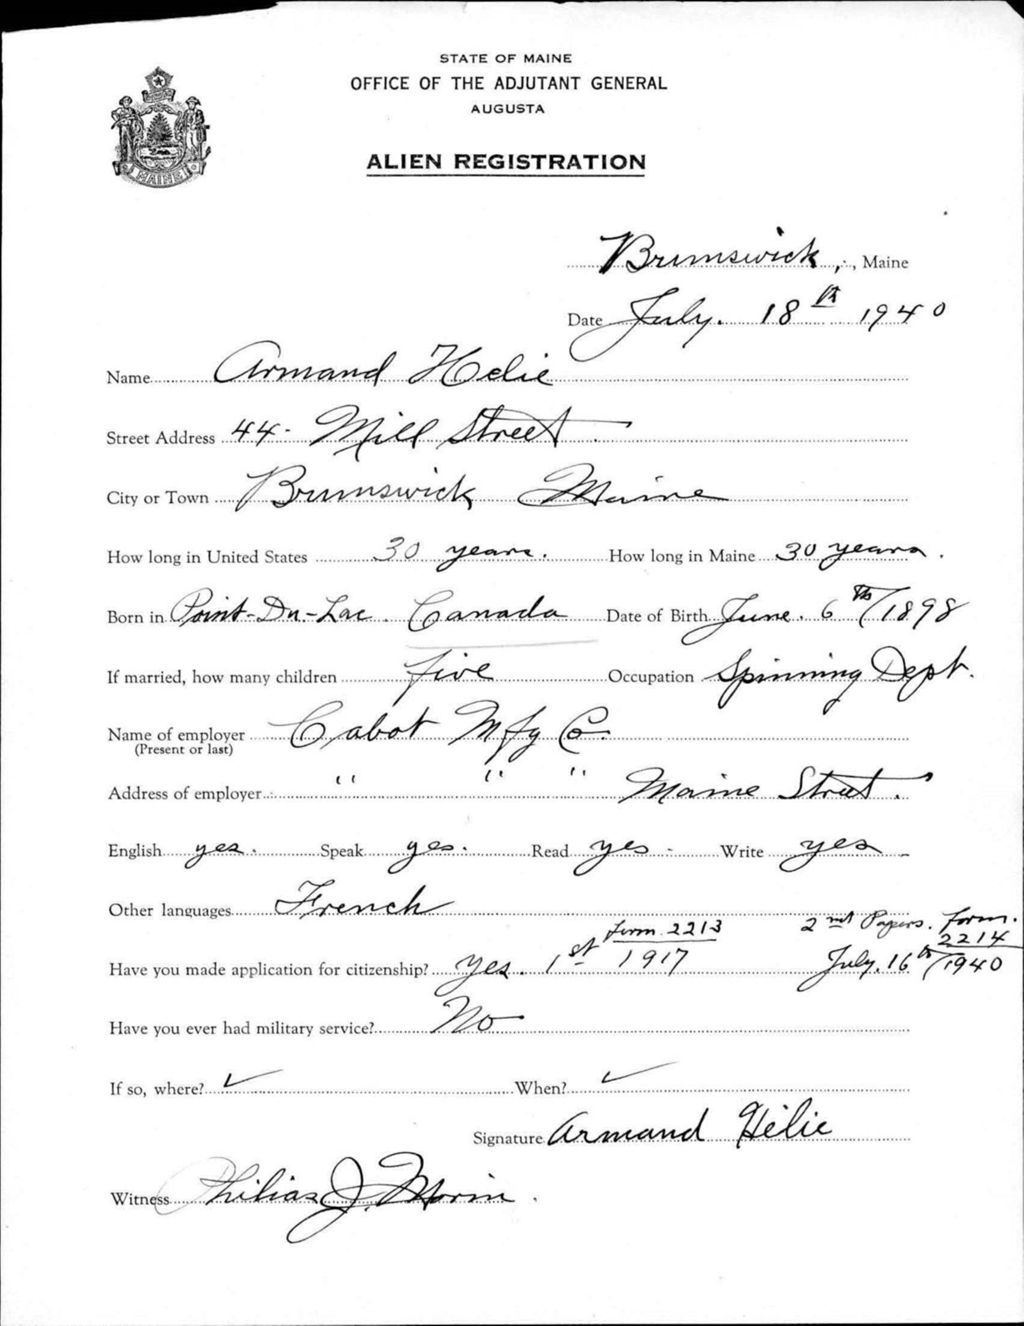 STATE OF MAINE
OFFICE OF THE ADJUTANT GENERAL
AUGUSTA
ALIEN REGISTRATION
MAINE
Brunswick, Maine
Date July. 18th 1940
Name Armand Helie
Street Address 44- Mill Street
City or Town Brunswick Maine
How long in United States 30 years. How long in Maine 30 years.
Born in Point-Du-Lac. Canada Date of Birth June. 6th/1898
If married, how many children five Occupation Spinning Dept.
Name of employer Cabot Mfg Co.
(Present or last)
Address of employer " " " Maine Street.
English yes. Speak yes. Read yes - Write yes
Other languages French
form 2213 2nd Papers. form. 2214
Have you made application for citizenship? Yes. 1st 1917 July. 16th/1940
Have you ever had military service? No
If so, where? ✓ When? ✓
Signature Armand Hélie
Witness Philias J. Morin.